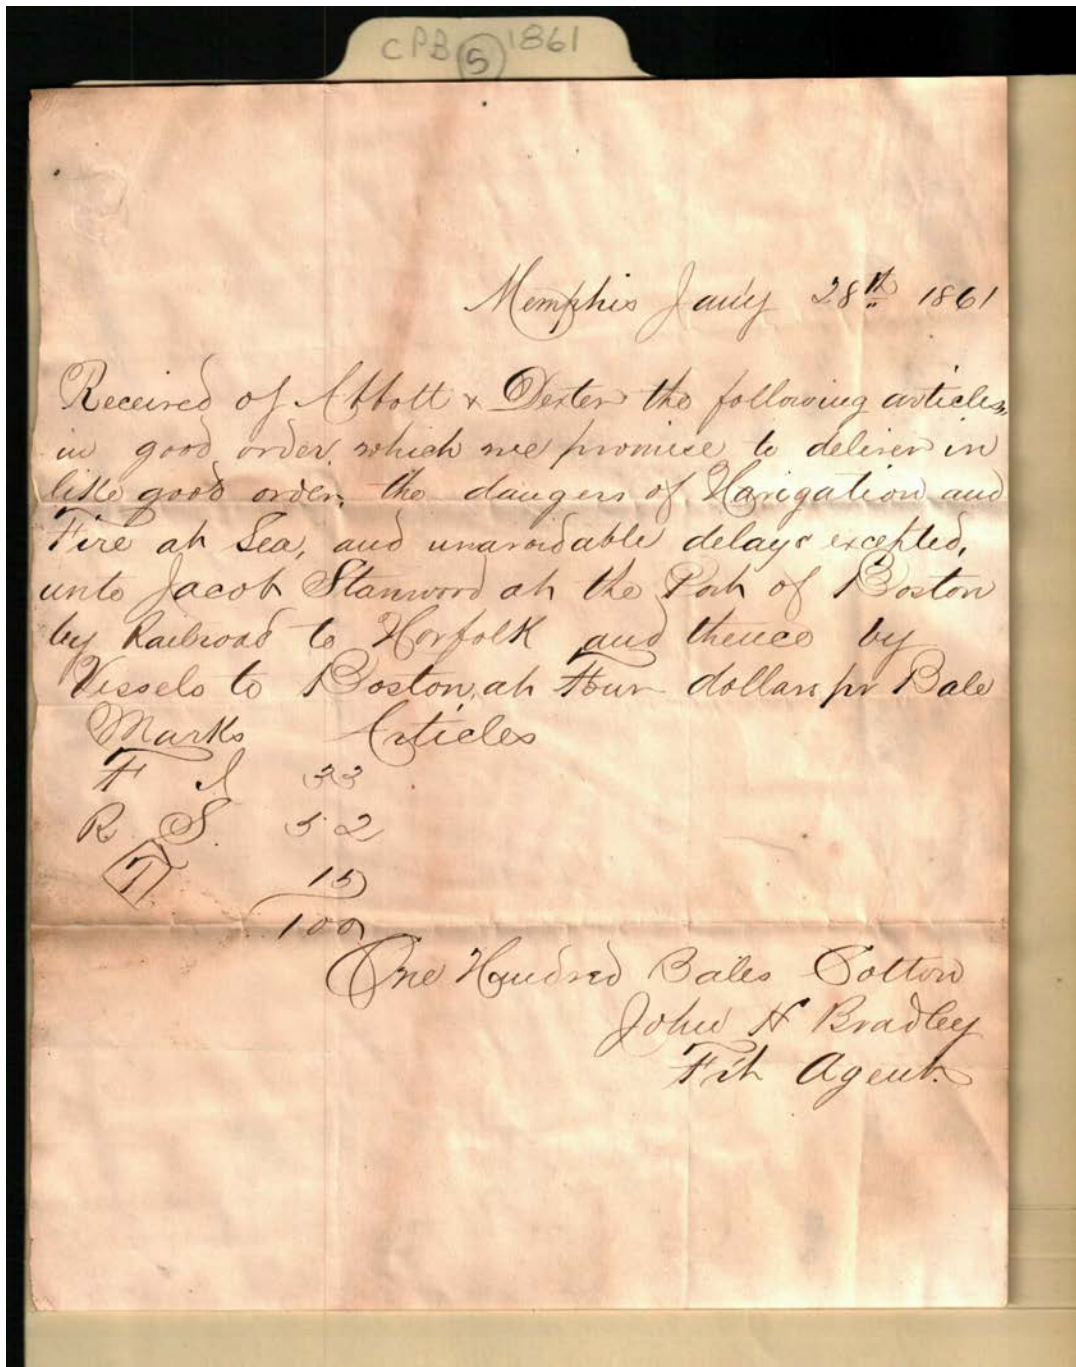 CPB 5 1861
Memphis Jany 28th 1861
Received of Abbott & Dexter the following articles,
in good order, which we promise to deliver in
like good order, the dangers of Navigation and
Fire at Sea, and unavoidable delays excepted,
unto Jacob Stanwood at the Port of Boston
by Railroad to Norfolk and thence by
Vessels to Boston, at Four dollars pr Bale
Marks Articles
F A 33
R S. 52
T 15
100
One Hundred Bales Cotton
John H Bradley
Frt Agent.